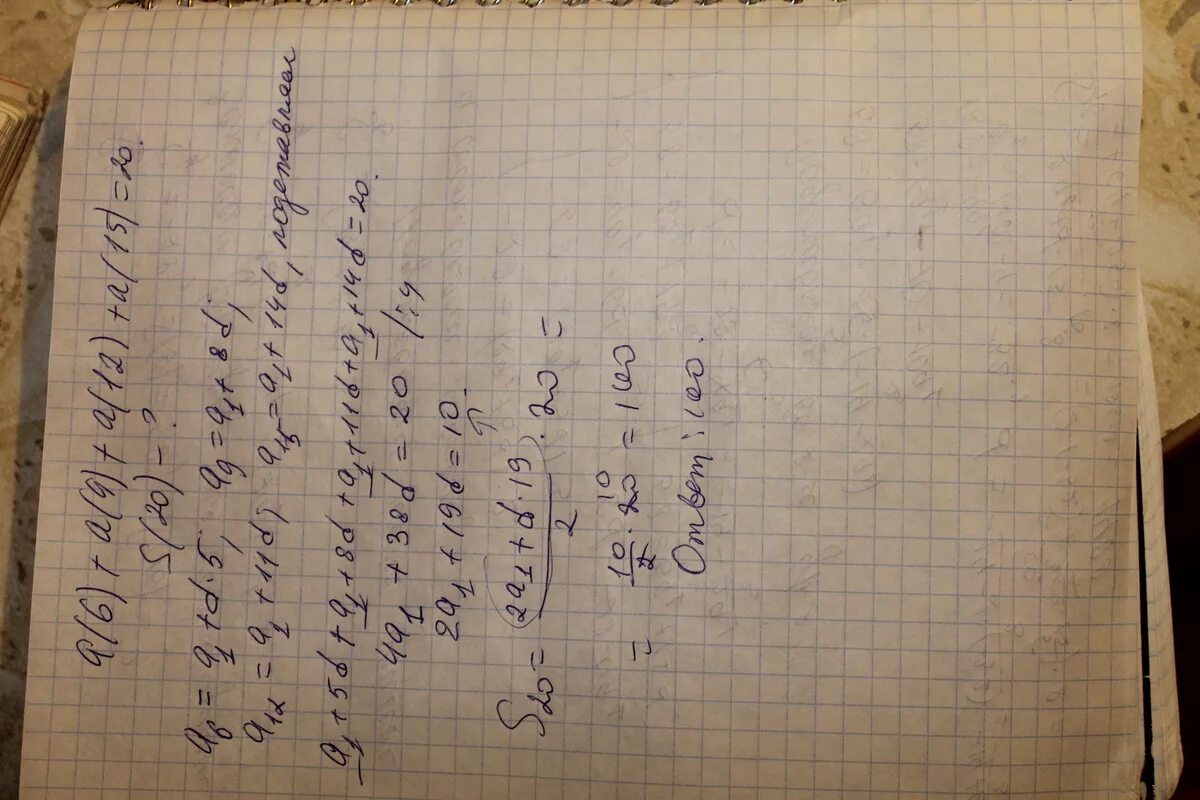 a(6) + a(9) + a(12) + a(15) = 20.
S(20) - ?
a₆ = a₁ + d·5; a₉ = a₁ + 8d;
a₁₂ = a₁ + 11d; a₁₅ = a₁ + 14d, подставляем
a₁ + 5d + a₁ + 8d + a₁ + 11d + a₁ + 14d = 20.
4a₁ + 38d = 20 /:
2a₁ + 19d = 10.
S₂₀ = (2a₁ + d·19)/2 · 20 =
= 10/2 · 20 10 = 100
Ответ: 100.